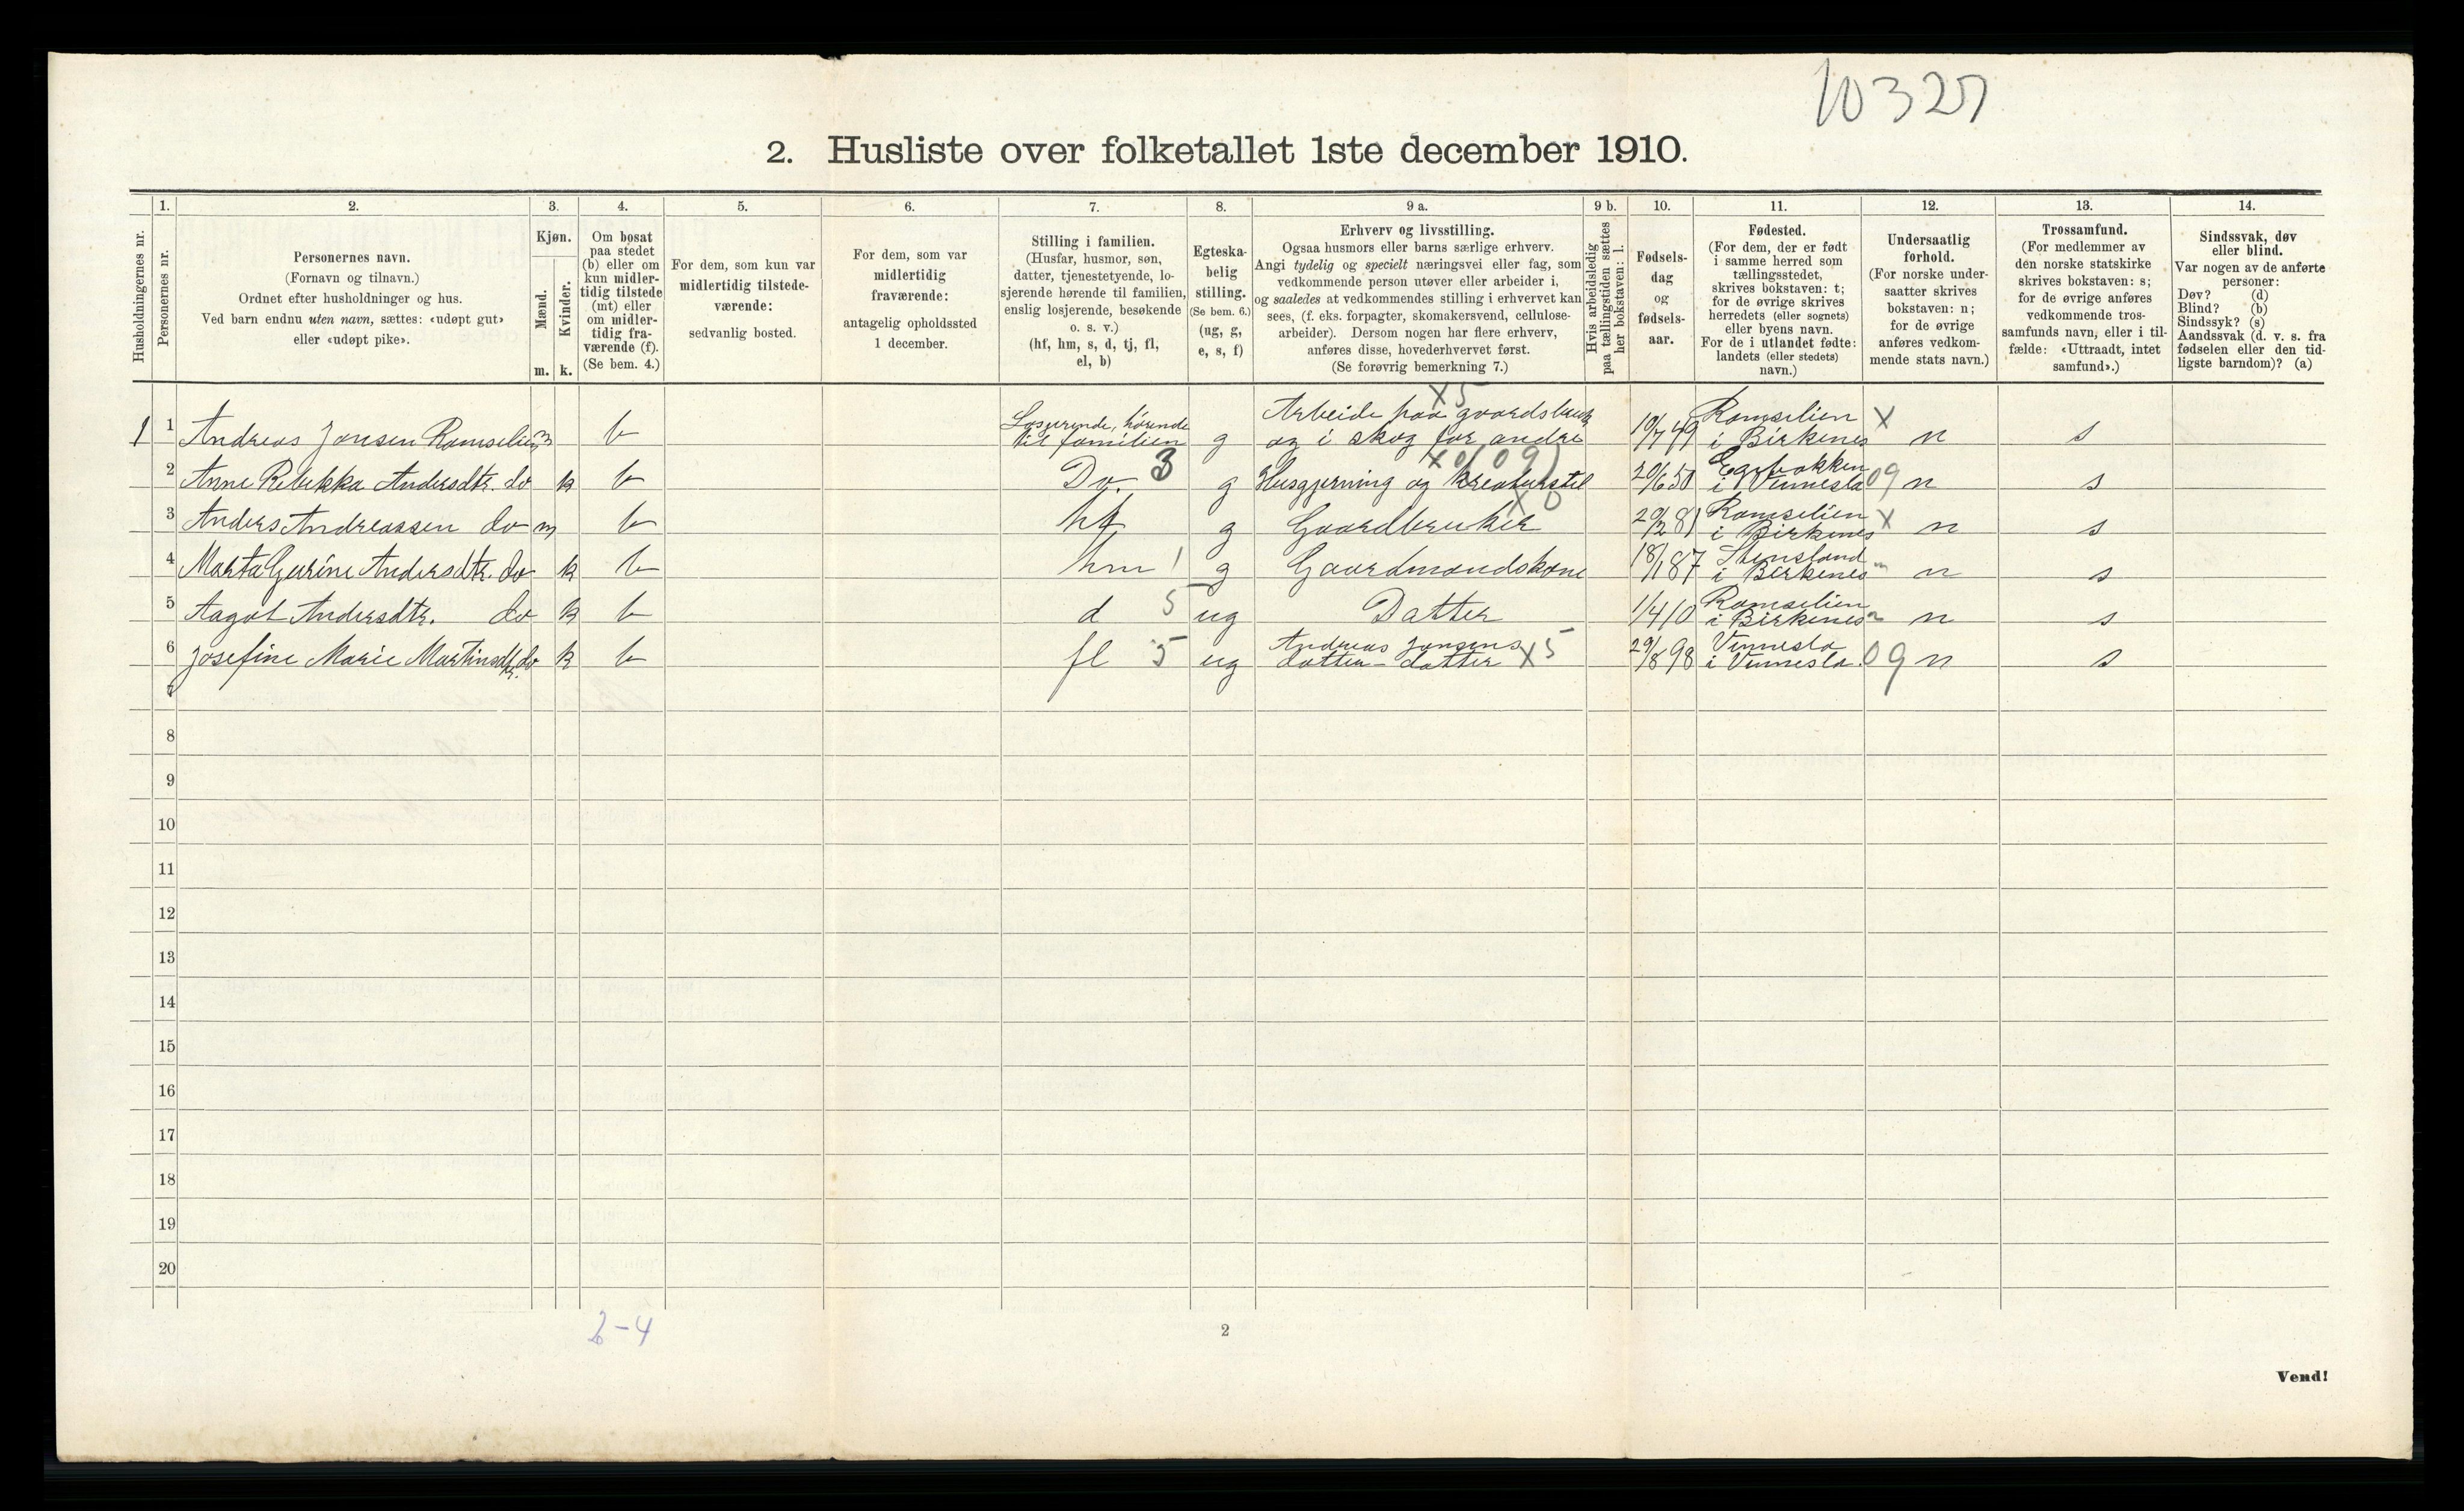 10327
2. Husliste over folketallet 1ste december 1910.
Husholdningernes nr.
1.
Personernes nr.
2.
Personernes navn.
(Fornavn og tilnavn.)
Ordnet efter husholdninger og hus.
Ved barn endnu uten navn, sættes: «udøpt gut»
eller «udøpt pike».
3.
Kjøn.
Mænd.
Kvinder.
m. k.
4.
Om bosat
paa stedet
(b) eller om
kun midler-
tidig tilstede
(mt) eller
om midler-
tidig fra-
værende (f).
(Se bem. 4.)
5.
For dem, som kun var
midlertidig tilstede-
værende:
sedvanlig bosted.
6.
For dem, som var
midlertidig
fraværende:
antagelig opholdssted
1 december.
7.
Stilling i familien.
(Husfar, husmor, søn,
datter, tjenestetyende, lo-
sjerende hørende til familien,
enslig losjerende, besøkende
o. s. v.)
(hf, hm, s, d, tj, fl,
el, b)
8.
Egteska-
belig
stilling.
(Se bem. 6.)
(ug, g,
e, s, f)
9 a.
Erhverv og livsstilling.
Ogsaa husmors eller barns særlige erhverv.
Angi tydelig og specielt næringsvei eller fag, som
vedkommende person utøver eller arbeider i,
og saaledes at vedkommendes stilling i erhvervet kan
sees, (f. eks. forpagter, skomakersvend, cellulose-
arbeider). Dersom nogen har flere erhverv,
anføres disse, hovederhvervet først.
(Se forøvrig bemerkning 7.)
9 b.
Hvis arbeidsledig
paa tællingstiden sættes
her bokstaven: l.
10.
Fødsels-
dag
og
fødsels-
aar.
11.
Fødested.
(For dem, der er født
i samme herred som
tællingsstedet,
skrives bokstaven: t;
for de øvrige skrives
herredets (eller sognets)
eller byens navn.
For de i utlandet fødte:
landets (eller stedets)
navn.)
12.
Undersaatlig
forhold.
(For norske under-
saatter skrives
bokstaven: n;
for de øvrige
anføres vedkom-
mende stats navn.)
13.
Trossamfund.
(For medlemmer av
den norske statskirke
skrives bokstaven: s;
for de øvrige anføres
vedkommende tros-
samfunds navn, eller i til-
fælde: «Uttraadt, intet
samfund».)
14.
Sindssvak, døv
eller blind.
Var nogen av de anførte
personer:
Døv? (d)
Blind? (b)
Sindssyk? (s)
Aandssvak (d. v. s. fra
fødselen eller den tid-
ligste barndom)? (a)
X5
1 1 Andreas Jonsen Ramselien m b Losjerende, hørende til familien g Arbeide paa gaardsbruk og i skog for andre 10/7 49 Ramselien i Birkenes X n s
2 Anne Rebekka Andersdtr. do k b Do. 3 g Husgjerning og kreaturstel 20/6 50 Egebakken i Vennesla 09 n s
3 Anders Andreassen do m b hf g Gaardbruker X0 29/2 81 Ramselien i Birkenes X n s
4 Marta Gurine Andersdtr. do k b hm 1 g Gaardmandskone 18/1 87 Stensland i Birkenes n s
5 Aagot Andersdtr. do k b d 5 ug Datter 1/4 10 Ramselien i Birkenes n s
6 Josefine Marie Martinsdtr. do k b fl 5 ug Andreas Jonsens datter-datter X5 29/8 98 Vennesla i Vennesla 09 n s
7
8
9
10
11
12
13
14
15
16
17
18
19
20
2-4
2
Vend!